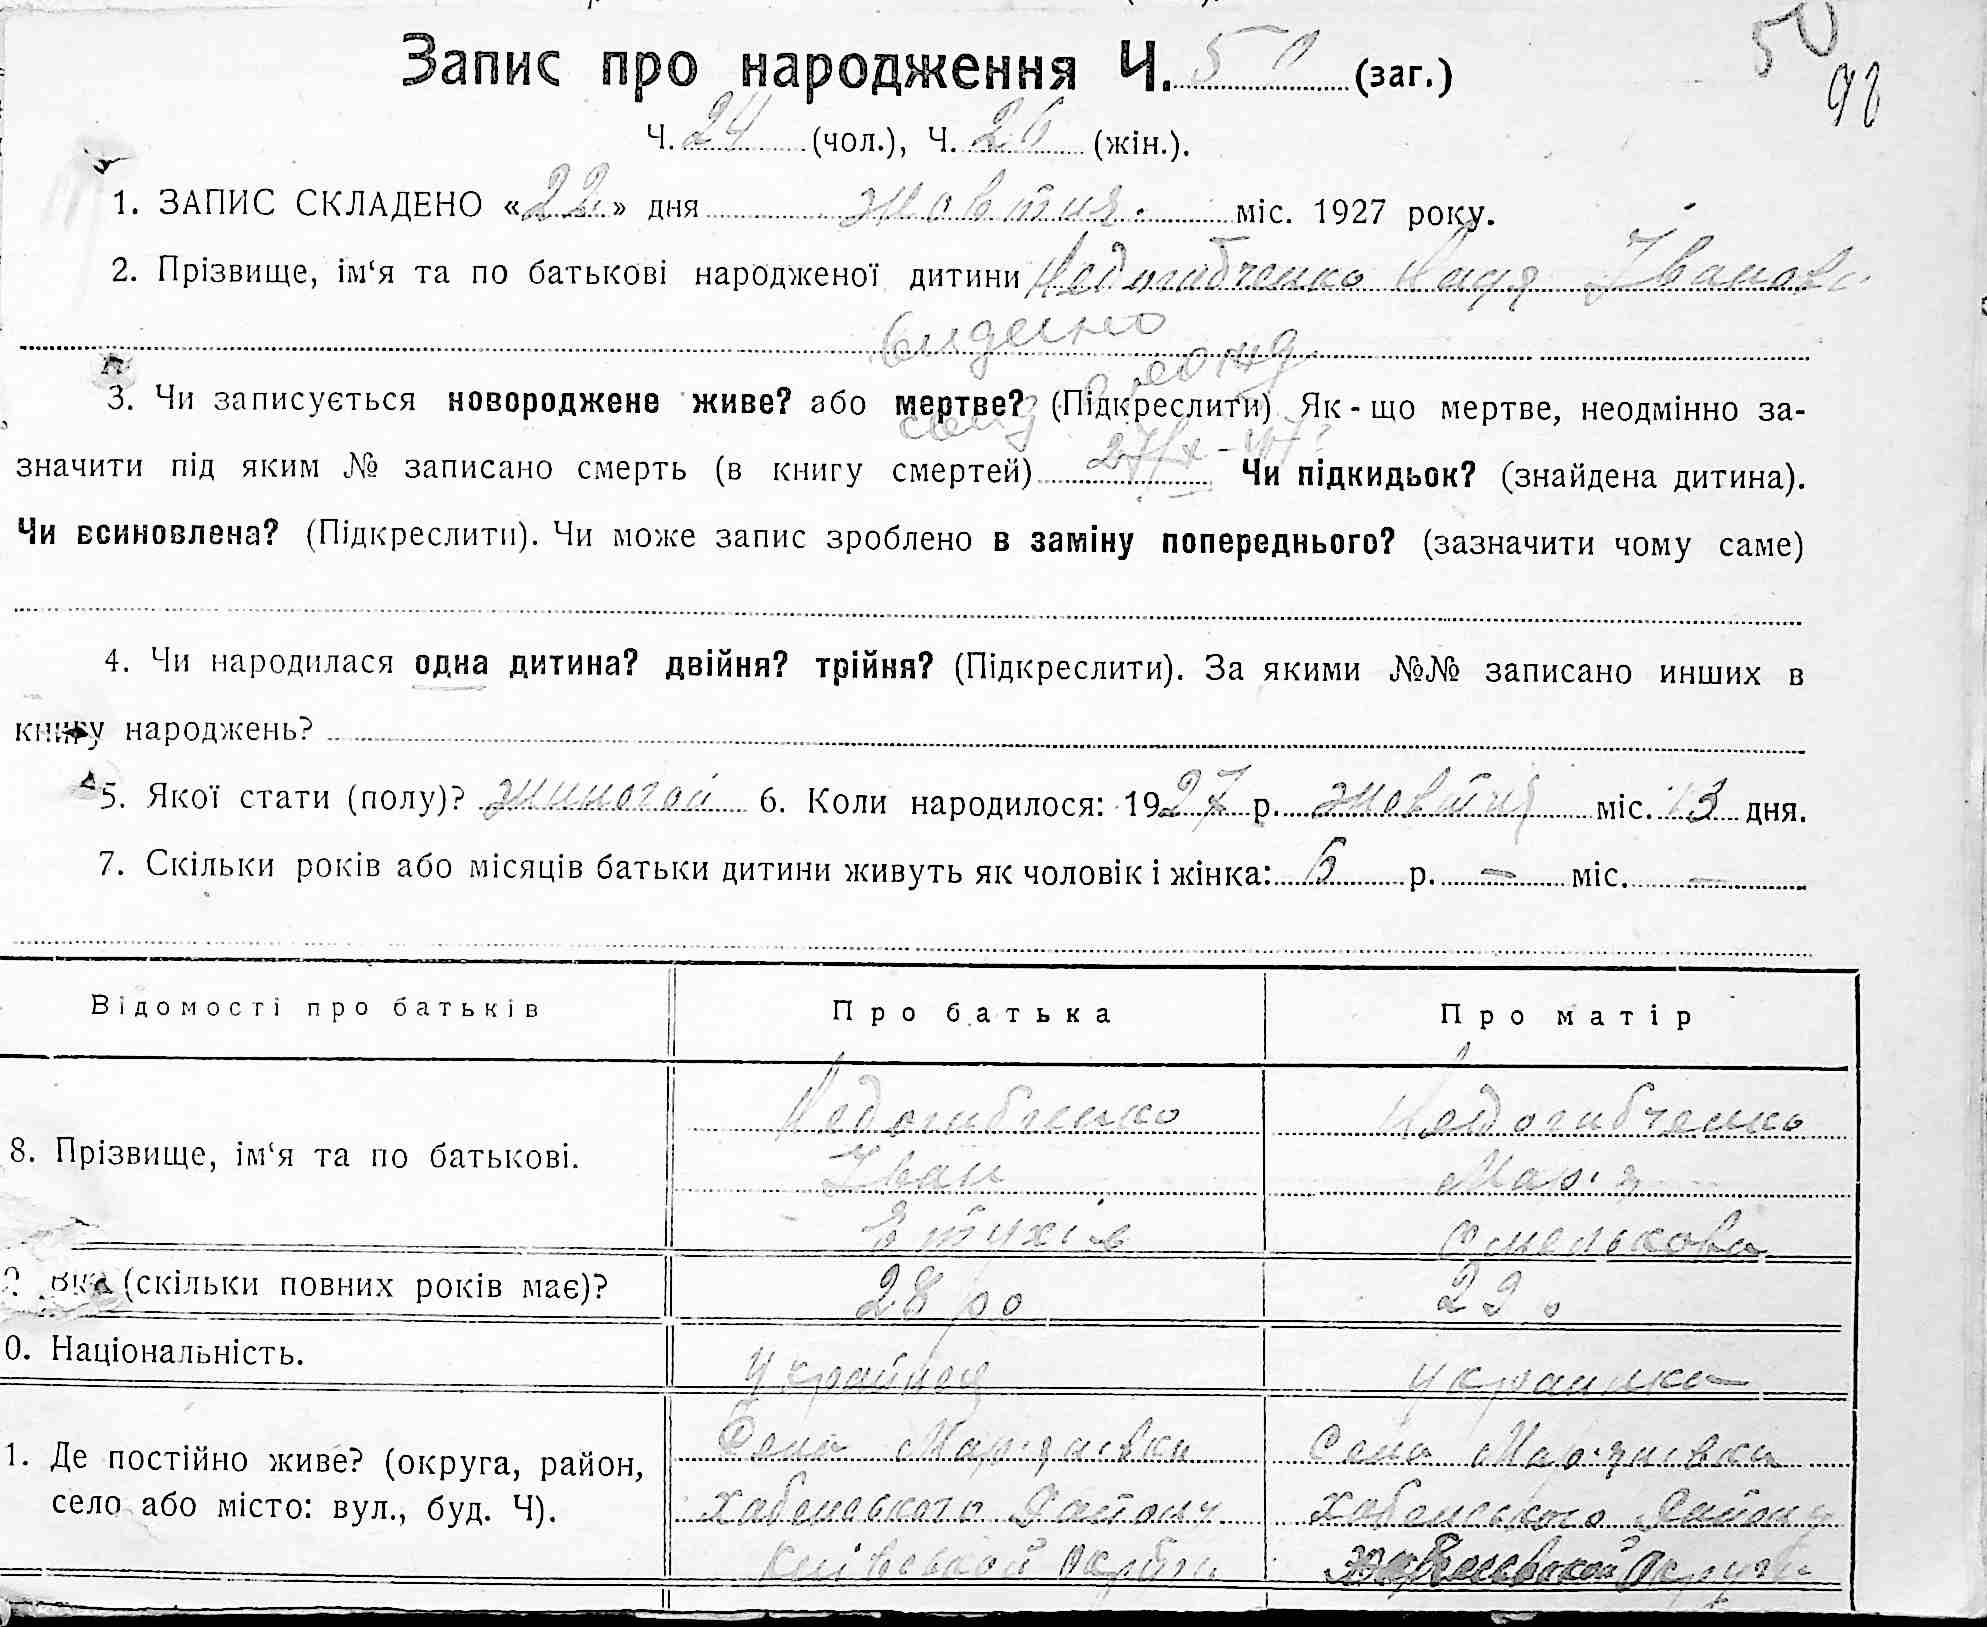 Запис про народження Ч. 50 (заг.)
50
98
Ч. 24 (чол.), Ч. 26 (жін.).
1. ЗАПИС СКЛАДЕНО «22» дня жовтня міс. 1927 року.
2. Прізвище, ім‘я та по батькові народженої дитини Недогибченко Надя Іванов
видано
3. Чи записується новороджене живе? або мертве? (Підкреслити) Як-що мертве, неодмінно за-
значити під яким № записано смерть (в книгу смертей) Чи підкидьок? (знайдена дитина).
Чи всиновлена? (Підкреслити). Чи може запис зроблено в заміну попереднього? (зазначити чому саме)
4. Чи народилася одна дитина? двійня? трійня? (Підкреслити). За якими №№ записано инших в
книгу народжень?
5. Якої стати (полу)? жиночой 6. Коли народилося: 1927 р. жовтня міс. 13 дня.
7. Скільки років або місяців батьки дитини живуть як чоловік і жінка: 6 р. — міс. —
Відомості про батьків Про батька Про матір
8. Прізвище, ім‘я та по батькові.
Недогибченко Недогибченко
Іван Марія
Омелькова
Вік (скільки повних років має)? 28 ро 29
0. Національність. Українец украинка
1. Де постійно живе? (округа, район, село або місто: вул., буд. Ч).
Село Мар'янівка Село Мар'янівка
Хабенського Району Хабенського Району
Київськой Округи Округи